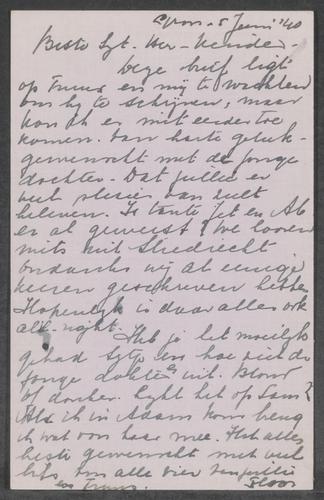 5 Juni '40
Beste Syt. Ber. Kinders -
Deze brief ligt
op Truus en mij te wachten
om bij te schrijven, maar
kon ik er niet eerder toe
komen. Van harte geluk-
gewenscht met de jonge
dochter. Dat jullie er
veel plezier van zult
beleven. Is tante Jet en Ab
er al geweest? We hooren
niets uit Sliedrecht
ondanks wij al eenige
keeren geschreven hebben
Hopenlijk is daar alles ook
all-right.
Heb je het moeilijk
gehad Sytje en hoe ziet de
jonge dochter er uit. Blond
of donker. Lijkt het op Sam?
Als ik in Adam kom breng
ik wat voor haar mee. Het alles
beste gewenscht met veel
liefs voor alle vier van jullie
en Truus.